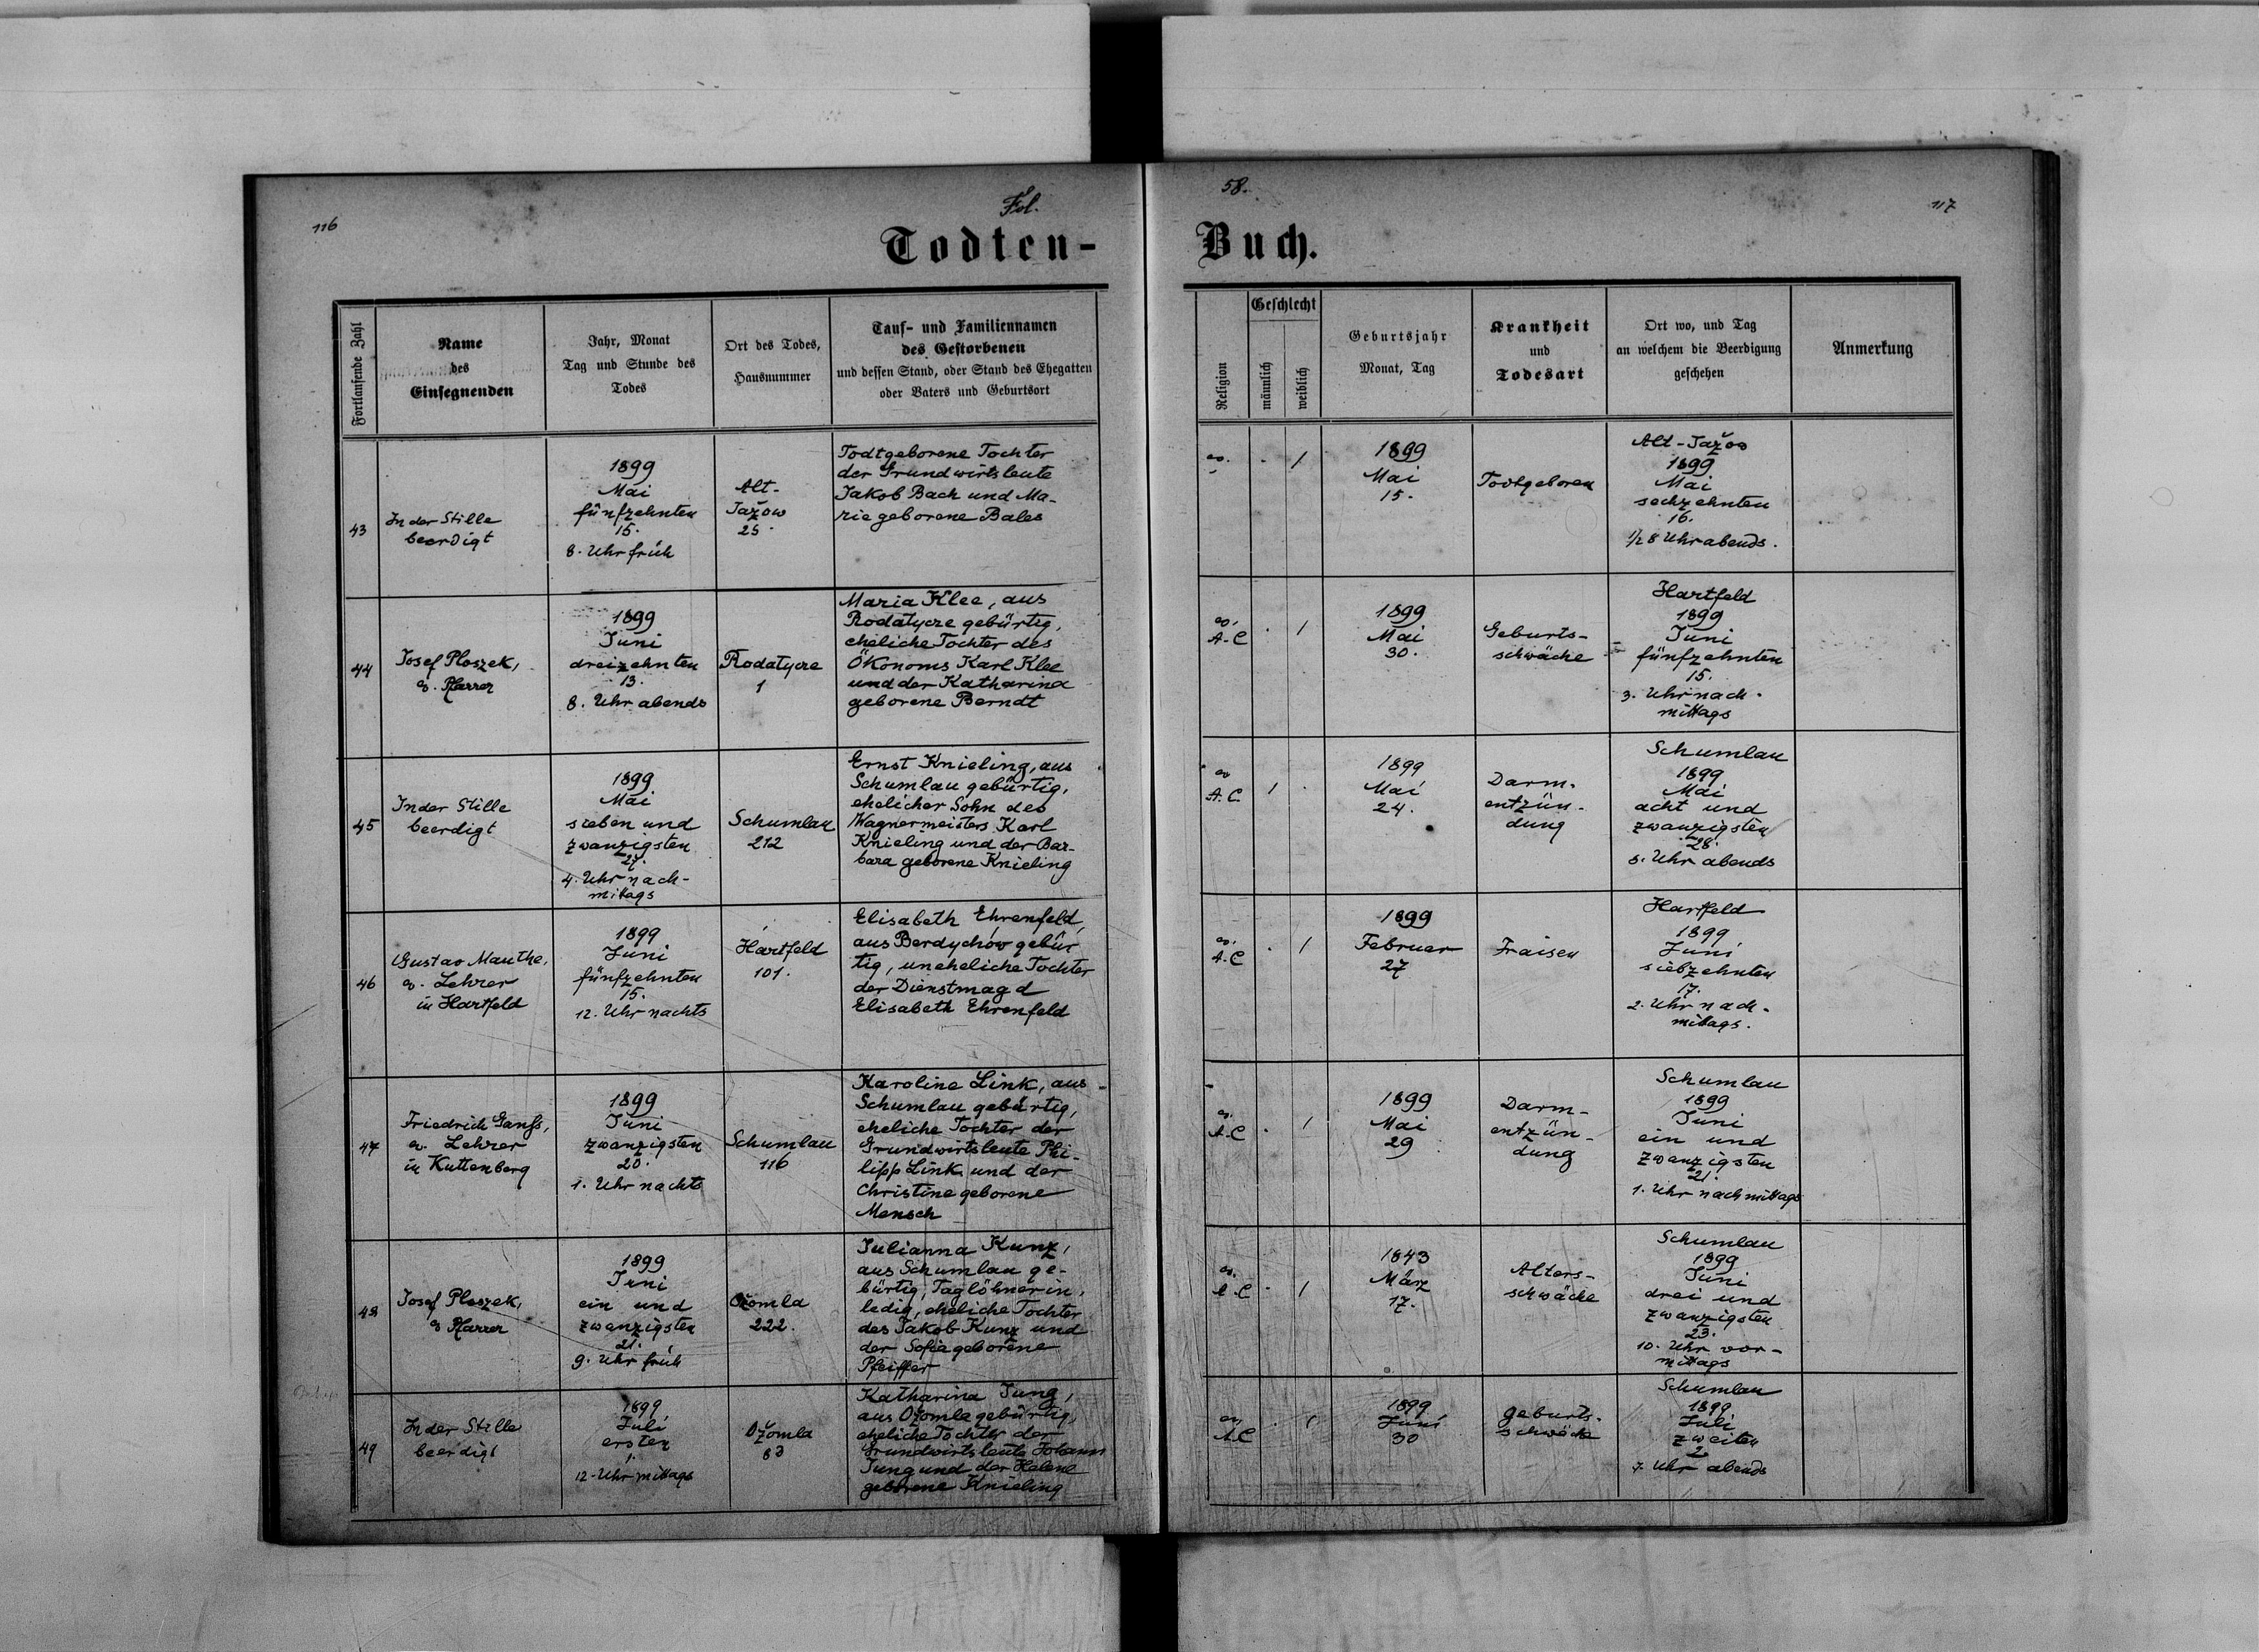 116
Fol.
58.
117
Todten-
Buch.
Fortlaufende Zahl
Name
des
Einsegnenden
Jahr, Monat
Tag und Stunde des
Todes
Ort des Todes,
Hausnummer
Tauf- und Familiennamen
des Gestorbenen
und dessen Stand, oder Stand des Ehegatten
oder Vaters und Geburtsort
Religion
Geschlecht
männlich
weiblich
Geburtsjahr
Monat, Tag
Krankheit
und
Todesart
Ort wo, und Tag
an welchem die Beerdigung
geschehen
Anmerkung
43
In der Stille
beerdigt
1899
Mai
fünfzehnten
15.
8. Uhr früh
Alt-
Jažow
25.
Todtgeborene Tochter
der Grundwirtsleute
Jakob Bach und Ma-
rie geborene Bales
ev.
1
1899
Mai
15.
Todtgeboren
Alt-Jažow
1899
Mai
sechzehnten
16.
1/2 8 Uhr abends.
44
Josef Ploszek,
ev. Pfarrer
1899
Juni
dreizehnten
13.
8. Uhr abends
Rodatycze
1
Maria Klee, aus
Rodatycze gebürtig,
eheliche Tochter des
Ökonoms Karl Klee
und der Katharina
geborene Berndt
ev.
A.C
1
1899
Mai
30.
Geburts-
schwäche
Hartfeld
1899
Juni
fünfzehnten
15.
3. Uhr nach-
mittags
45
In der Stille
beerdigt
1899
Mai
sieben und
zwanzigsten
27.
4. Uhr nach-
mittags
Schumlau
212
Ernst Knieling, aus
Schumlau gebürtig,
ehelicher Sohn des
Wagnermeisters Karl
Knieling und der Bar-
bara geborene Knieling
ev
A.C.
1
1899
Mai
24.
Darm-
entzün-
dung
Schumlau
1899
Mai
acht und
zwanzigsten
28.
Uhr abends
46
Gustav Mauthe,
ev. Lehrer
in Hartfeld
1899
Juni
fünfzehnten
15.
12. Uhr nachts
Hartfeld
101.
Elisabeth Ehrenfeld,
aus Berdychów gebür
tig, uneheliche Tochter
der Dienstmagd
Elisabeth Ehrenfeld
ev.
A.C
1
1899
Februar
27
Fraisen
Hartfeld
1899
Juni
siebzehnten
17.
2. Uhr nach-
mittags.
47
Friedrich Ganss,
ev. Lehrer
in Kuttenberg
1899
Juni
zwanzigsten
20.
1. Uhr nachts
Schumlau
116
Karoline Link, aus
Schumlau gebürtig,
eheliche Tochter der
Grundwirtsleute Phi-
lipp Link und der
Christine geborene
Mensch
ev.
A.C
1
1899
Mai
29
Darm-
entzün-
dung
Schumlau
1899
Juni
ein und
zwanzigsten
21.
1. Uhr nachmittags
48
Josef Ploszek,
ev Pfarrer
1899
Juni
ein und
zwanzigsten
21.
9. Uhr früh
Ožomla
222.
Julianna Kunz,
aus Schumlau ge-
bürtig, Taglöhnerin,
ledig, eheliche Tochter
des Jakob Kunz und
der Sofia geborene
Pfeiffer
ev.
A.C
1
1843
März
17.
Alters-
schwäche
Schumlau
1899
Juni
drei und
zwanzigsten
23.
10. Uhr vor-
mittags
49
In der Stille
beerdigt
1899
Juli
ersten
1.
12-Uhr mittags
Ožomla
Katharina Jung,
aus Ožomla gebürtig,
eheliche Tochter der
Grundwirtsleute Johann
Jung und der Helene
geborene Knieling
ev.
A.C
1
1899
Juni
30
Geburts-
schwäche
Schumlau
1899
Juli
zweiten
2
7. Uhr abends